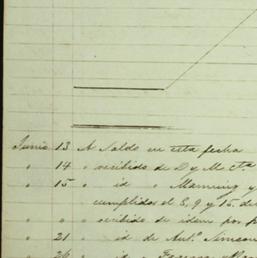 Junio 13 A Saldo en esta fecha
" 14 " recibido de D y M cta
" 15 " id " Manning y
cumplidos el 5, 9 y 15 de
" " " recibido de idem por
" 21 " id de Anto. Simeon
" 26 " id